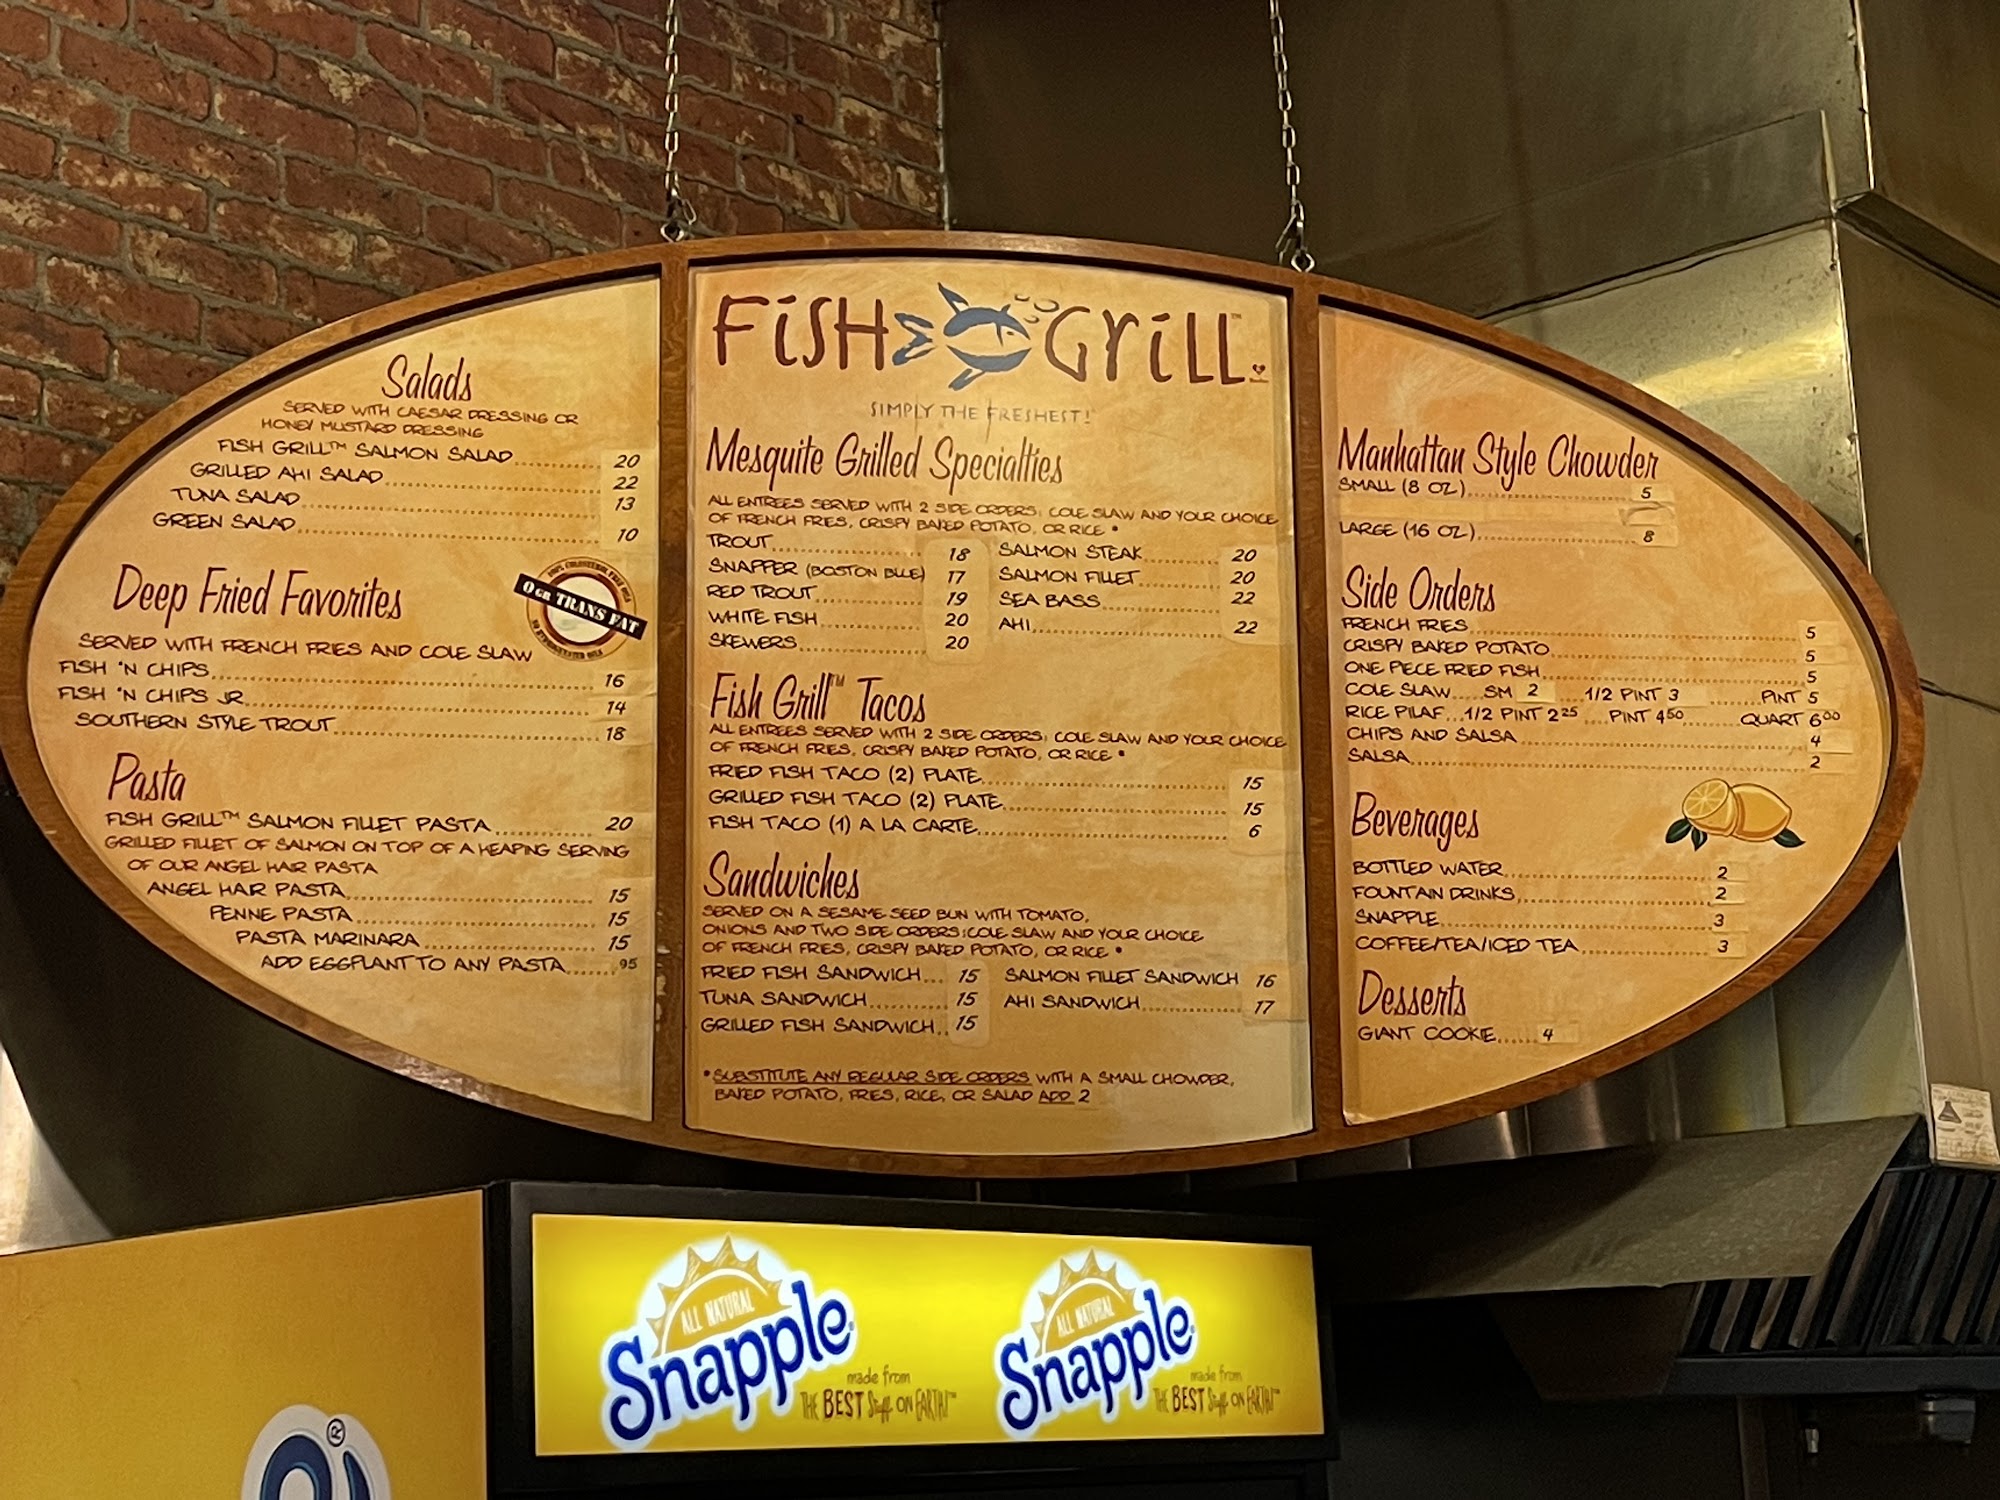 Salads
SERVED WITH CAESAR DRESSING OR
HONEY MUSTARD DRESSING
FISH GRILL™ SALMON SALAD 20
GRILLED AHI SALAD 22
TUNA SALAD 13
GREEN SALAD 10
Deep Fried Favorites
0 GR TRANS FAT
SERVED WITH FRENCH FRIES AND COLE SLAW
FISH 'N CHIPS 16
FISH 'N CHIPS JR 14
SOUTHERN STYLE TROUT 18
Pasta
FISH GRILL™ SALMON FILLET PASTA 20
GRILLED FILLET OF SALMON ON TOP OF A HEAPING SERVING
OF OUR ANGEL HAIR PASTA
ANGEL HAIR PASTA 15
PENNE PASTA 15
PASTA MARINARA 15
ADD EGGPLANT TO ANY PASTA .95
FiSH GriLL™
SIMPLY THE FRESHEST!
Mesquite Grilled Specialties
ALL ENTREES SERVED WITH 2 SIDE ORDERS: COLE SLAW AND YOUR CHOICE
OF FRENCH FRIES, CRISPY BAKED POTATO, OR RICE *
TROUT 18
SNAPPER (BOSTON BLUE) 17
RED TROUT 19
WHITE FISH 20
SKEWERS 20
SALMON STEAK 20
SALMON FILLET 20
SEA BASS 22
AHI 22
Fish Grill™ Tacos
ALL ENTREES SERVED WITH 2 SIDE ORDERS: COLE SLAW AND YOUR CHOICE
OF FRENCH FRIES, CRISPY BAKED POTATO, OR RICE *
FRIED FISH TACO (2) PLATE 15
GRILLED FISH TACO (2) PLATE 15
FISH TACO (1) A LA CARTE 6
Sandwiches
SERVED ON A SESAME SEED BUN WITH TOMATO,
ONIONS AND TWO SIDE ORDERS: COLE SLAW AND YOUR CHOICE
OF FRENCH FRIES, CRISPY BAKED POTATO, OR RICE *
FRIED FISH SANDWICH 15
TUNA SANDWICH 15
GRILLED FISH SANDWICH 15
SALMON FILLET SANDWICH 16
AHI SANDWICH 17
* SUBSTITUTE ANY REGULAR SIDE ORDERS WITH A SMALL CHOWDER,
BAKED POTATO, FRIES, RICE, OR SALAD ADD 2
Manhattan Style Chowder
SMALL (8 OZ) 5
LARGE (16 OZ) 8
Side Orders
FRENCH FRIES 5
CRISPY BAKED POTATO 5
ONE PIECE FRIED FISH 5
COLE SLAW SM 2 1/2 PINT 3 PINT 5
RICE PILAF 1/2 PINT 2.25 PINT 4.50 QUART 6.00
CHIPS AND SALSA 4
SALSA 2
Beverages
BOTTLED WATER 2
FOUNTAIN DRINKS 2
SNAPPLE 3
COFFEE/TEA/ICED TEA 3
Desserts
GIANT COOKIE 4
ALL NATURAL
Snapple
made from
THE BEST Stuff ON EARTH™
ALL NATURAL
Snapple
made from
THE BEST Stuff ON EARTH™